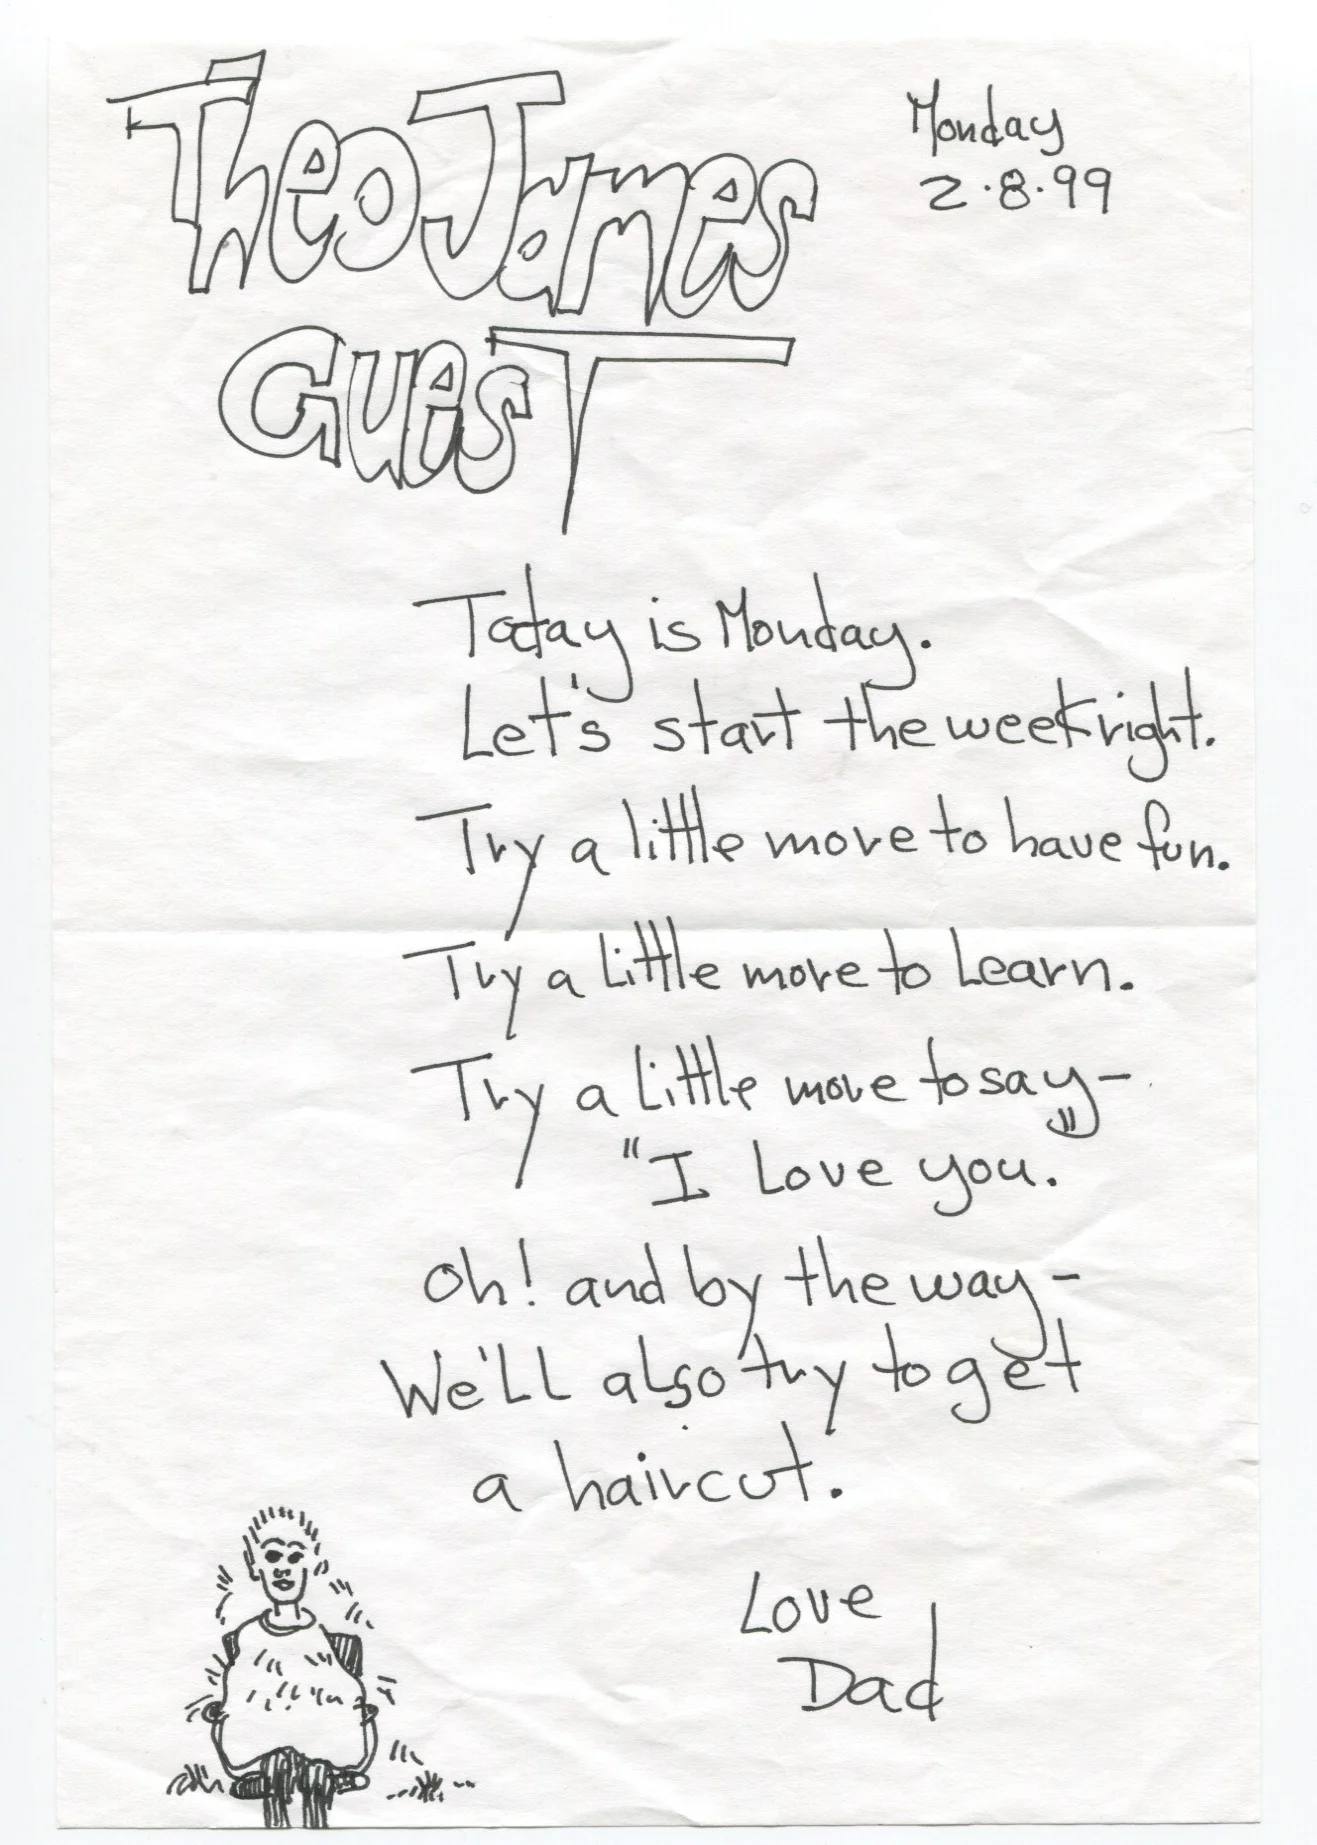 Theo James
Guest
Monday
2.8.99
Today is Monday.
Let's start the week right.
Try a little more to have fun.
Try a little more to learn.
Try a little more to say–
"I Love you."
Oh! and by the way–
We'll also try to get
a haircut.
Love
Dad